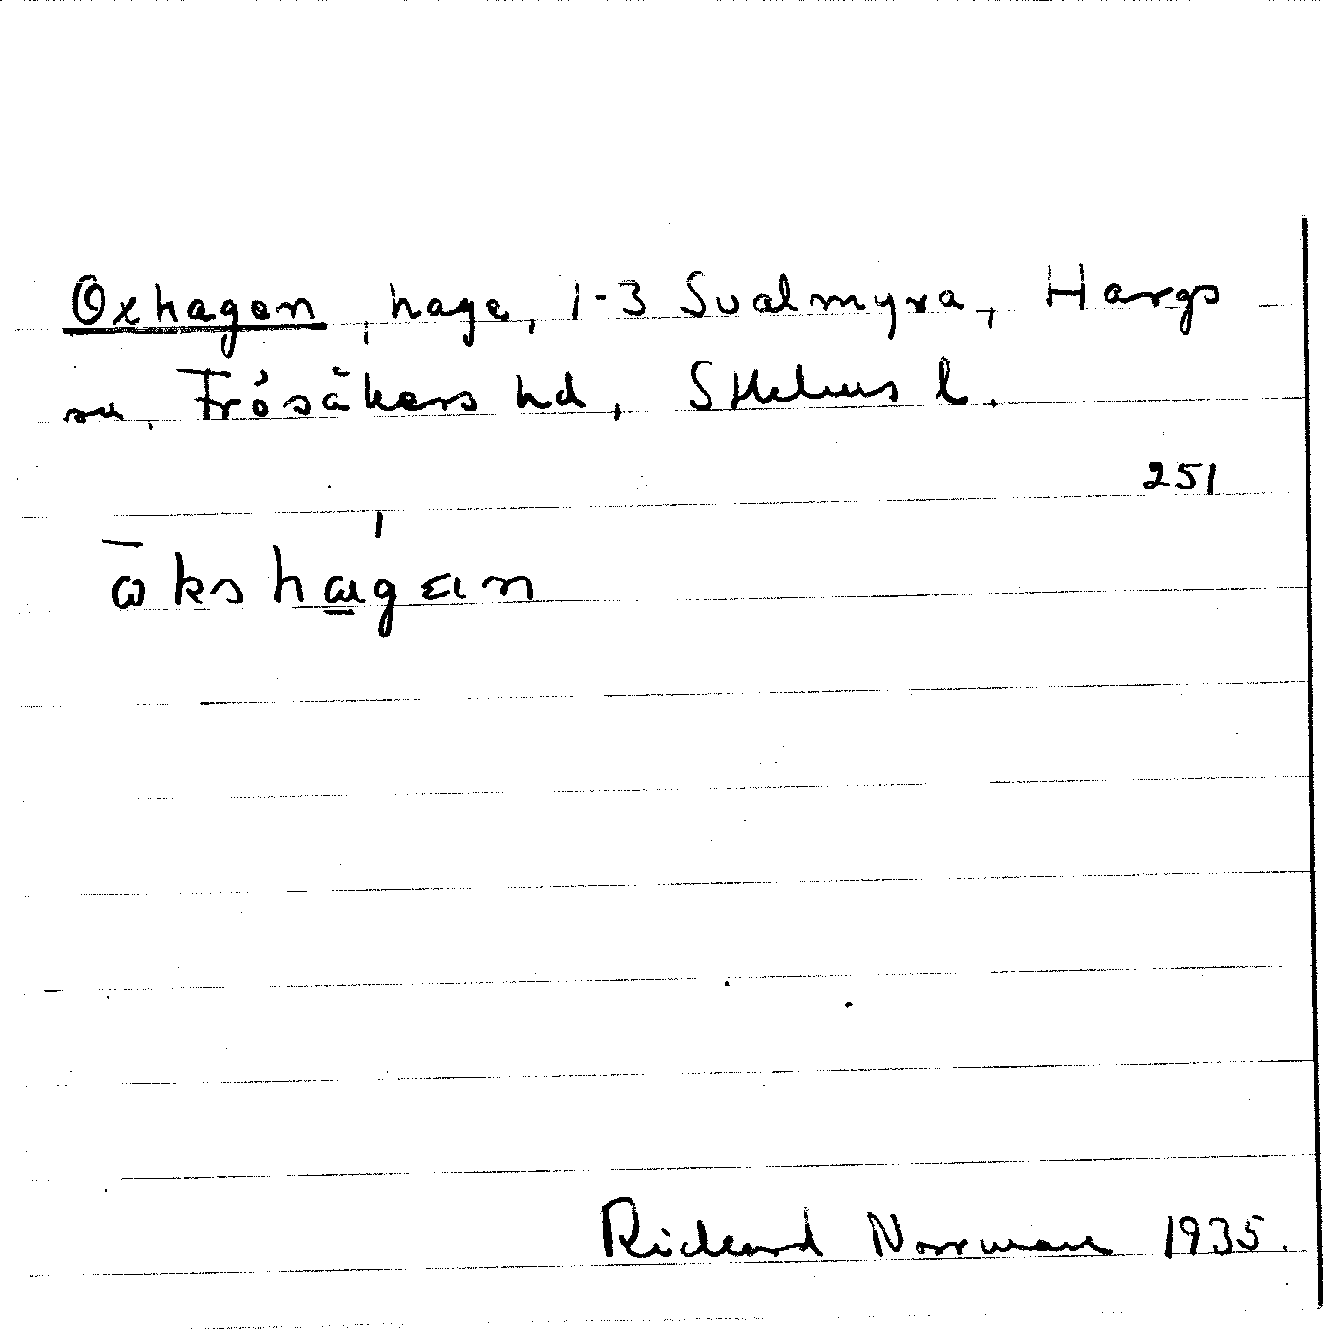 Oxhagen, hage, 1-3 Svalmyra, Hargs
sn, Frösåkers hd, Sthlms l.
251
Rickard Norrman 1935.